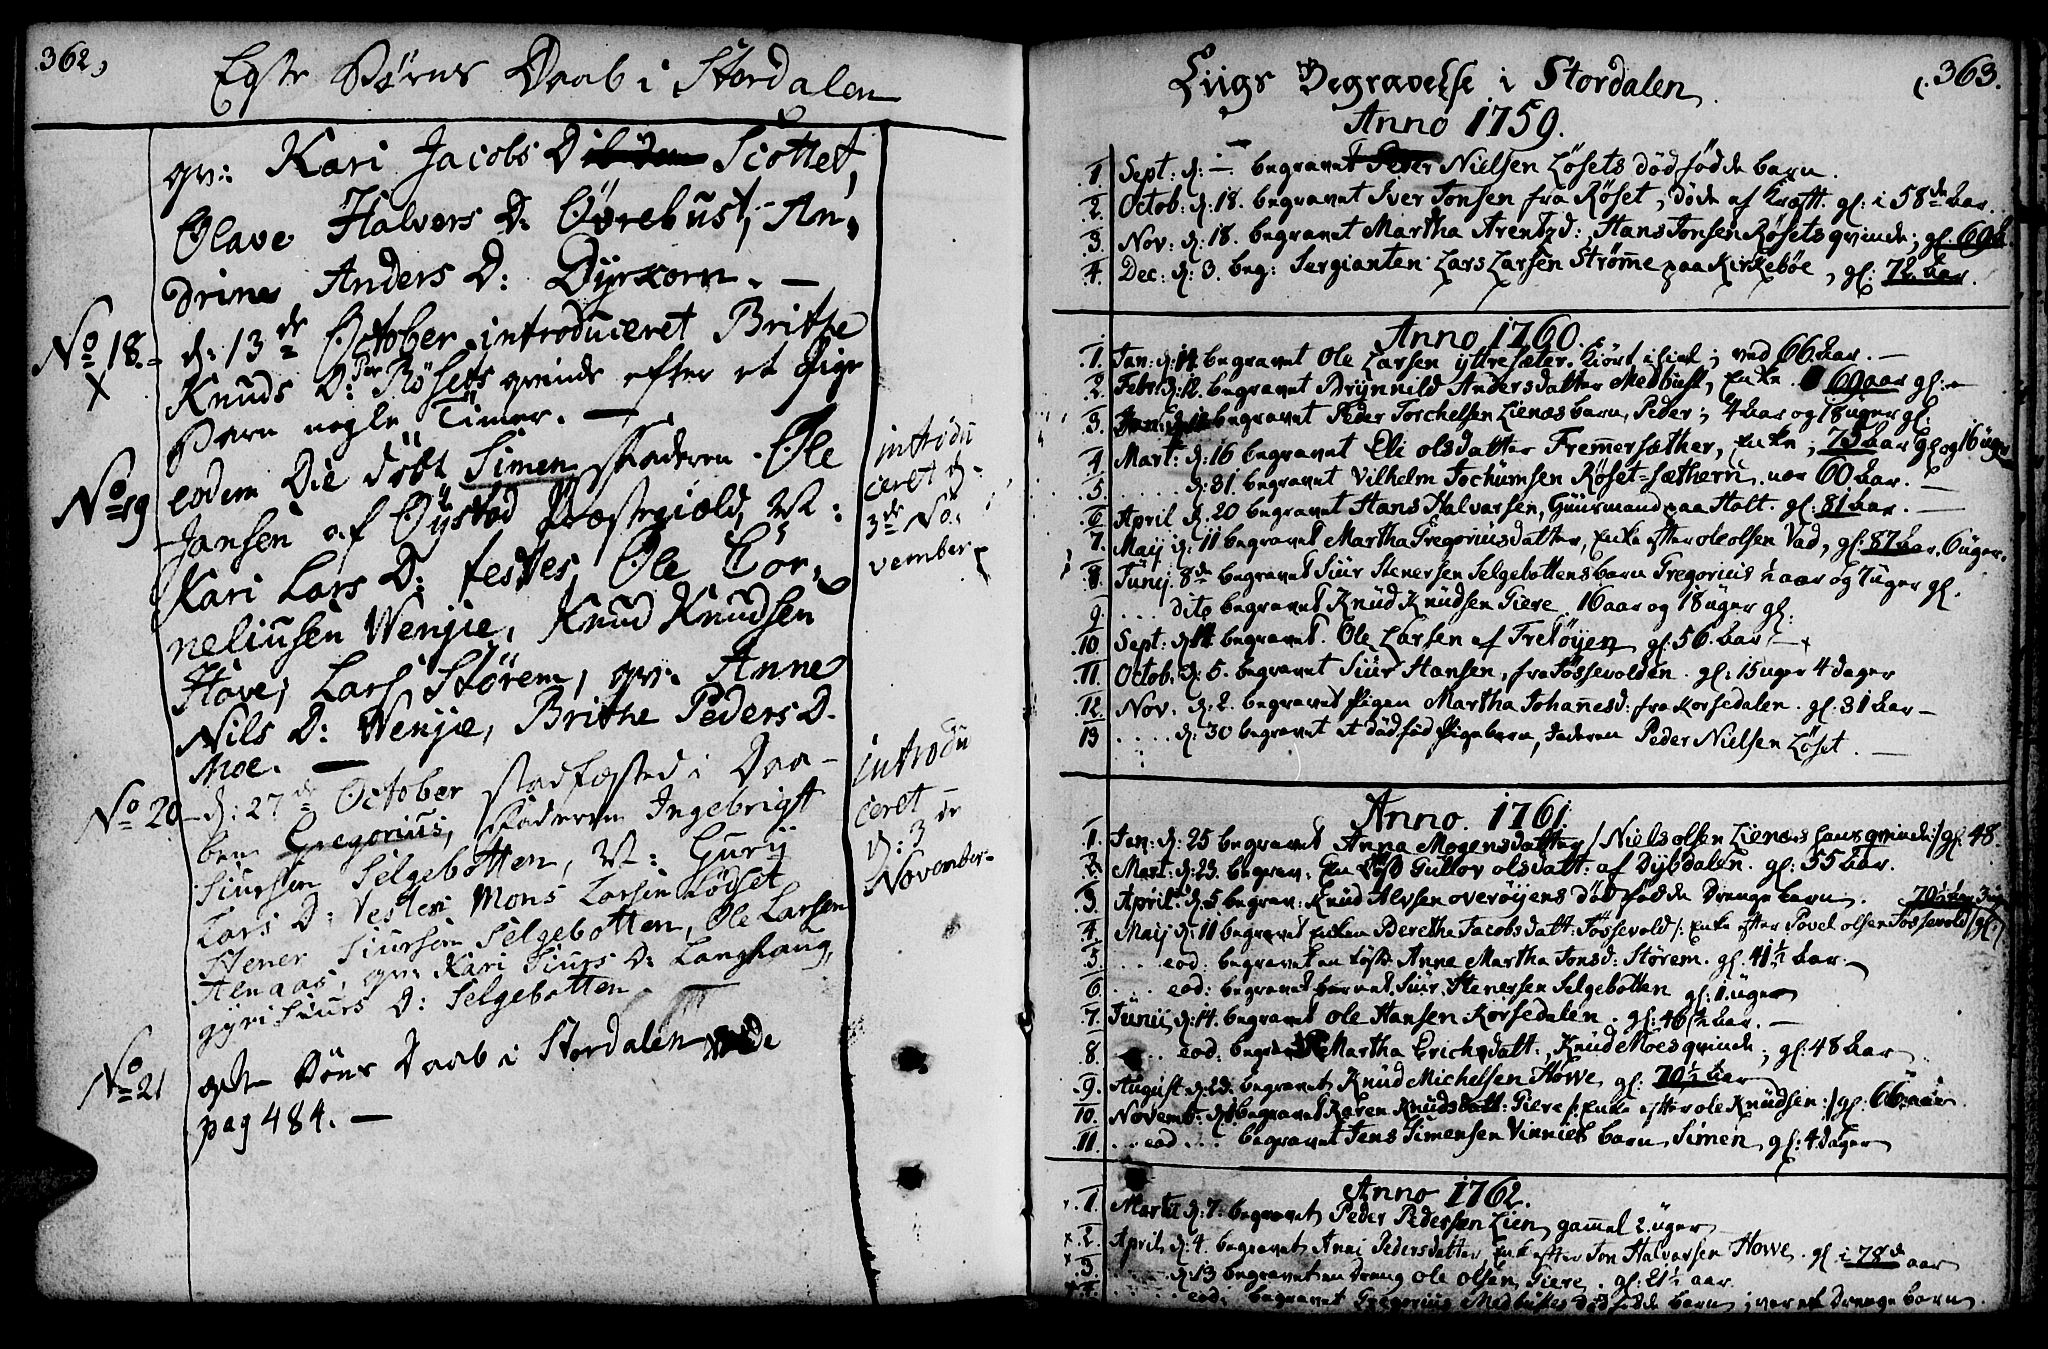 362,
Egte Børns Daab i Stordalen
qv: Kari Jacobs D Scottet,
Olave Halvors D: Øvrebust, An,
drine Anders D: Dyrkorn. —
No 18. d: 13de October introduceret Brithe
Knuds D: Per Røsets qvinde efter et Pige
Barn nogle Timer. —
No 19 eodem Die döbt Simen, Faderen Ole
Jansen af Öystad Præstegiæld, M:
Kari Lars D: testes Ole Cor,
neliusen Wenjie, Knud Knudsen
Hove, Lars Störem, qv: Anne
Nils D: Wenjie, Brithe Peders D.
Moe. —
introdu
ceret d.
3de No,
vember
No 20 d: 27de October stadfæsted i Daa-
ben Gregorius, Faderen Ingebrigt
Siursen Selgebotten, M: Gurij
Lars D: Testes Mons Larsen Lödset
Stener Siursen Selgebotten, Ole Larsen
Alnaas, qv: Kari Siurs D: Langhaug,
gyri Siurs D: Selgebotten.
introdu
ceret —
d: 3de
November-
No 21 egte Börns Daab i Stordalen vide
pag 484. —
363.
Liigs Begravelse i Stordalen
Anno 1759.
1. Sept: d: — begravet Peder Nielsen Lösets död födde barn.
2. Octob: d: 18. begravet Iver Jonsen fra Röset, döde af Kræft. gl: i 58de aar.
3. Nov: d: 18. begravet Martha Arentzd: Hans Jonsen Rösets qvinde; gl. 69
4. Dec: d: 3. beg: Sergianten Lars Larsen Strömme paa Kirkeböe, gl: 72 aar.
Anno 1760.
1. Jan: d: 14 begravet Ole Larsen yttresæter. ved 66 aar. —
2. Febr: d: 12. begravet Brynnild Andersdatter Medbust, Enke. 69 aar gl: —
3. begravet Peder Torchelsen Lienæs barn, Peder; 4 aar og 18 uger gl:
4. Mart: d: 16 begravet Eli olsdatter Fremmersæther, Enke; 73 aar gl og 16 uger
5. . . . . d: 31. begravet Vilhelm Jochumsen Röset=sæthern, nær 60 aar. —
6. April d. 20 begravet Hans Halvarsen, Guursmand paa Holt. gl: 81 aar. —
7. Maij d: 11 begravet Martha Gregoriusdatter, Enke efter ole olsen Vad, gl: 87 aar. 6 uger.
8. Junij 8de begravet Siur Stenersen Selgebottens barn Gregorius ½ aar og 7 uger gl.
9. . . . dito begravet Knud Knudsen Giere. 16 aar og 18 uger gl:
10. Sept: d: 14 begravet. Ole Larsen af Fretöyen gl: 56. aar —
11. Octob: d: 5. begravet Siur Hansen, fra Fössevolden. gl: 15 uger 4 dager
12. Nov. d. 2. begravet Pigen Martha Johannesd: fra Korsedalen. gl. 31 aar —
13 . . . . d: 30 begravet et dödfød Pigebarn, Faderen Peder Nielsen Löset. —
Anno. 1761.
1. Jan: d: 25 begravet Anna Mogensdatter / Niels olsen Lienæs hans qvinde:/ gl: 48
2. Mart: d: 23. begrav: En Guttov olsdatt: af Dybdalen. gl: 55 aar.
3. April: d. 5 begrav: Knud Alvsen overöyens död födde Drenge barn.
70½ aar 3 uger
4. Maij d: 11 begravet enken Berethe Jacobsdatt: Fossevold /: Enke efter Povel olsen Fossevold / gl:/
5. . . . eod: begravet en Anne Martha Jonsd: Störem. gl: 41½ aar. —
6 . . . eod: begravet barnet Siur Stenersen Selgebotten gl: 1. uger
7. Junij d: 14. begravet ole Hansen Korsedalen. gl: 46½ aar. —
8 . . . eod: begravet Martha Erichsdatt: Knud Moes qvinde; gl: 48 aar
9. August d: 23. begravet Knud Michelsen Howe gl: 70½ aar
10. Novemb: d: 1 begravet Karen Knudsdatt: Giere /: Enke efter ole Knudsen:/ gl. 66. aar.
11. . . eod . . . begravet Jens Simensen Vinnies barn Simen, gl: 4 dager
Anno 1762.
1. Martii d: 7: begravet Peder Pedersen Lien, gammel 2. uger
x 2. April d. 4. begravet Anni Pedersdatter, Enke efter Jon Halvarsen Howe. gl i 78de aar
x 3. . . . . d: 13 begravet en Dreng ole olsen Giere. gl: 21½ aar.
4. . . . . eod: begravet Gregorius Medbustes död födde barn; var et Drenge barn.